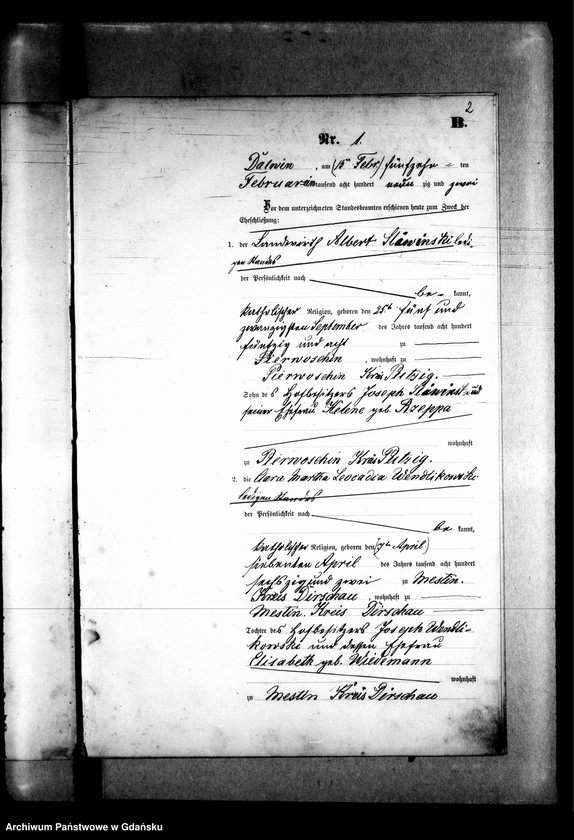 2
B.
Nr. 1.
Dalwin, am (15ten Febr) fünfzehn ten
Februar eintausend acht hundert neun zig und zwei
Vor dem unterzeichneten Standesbeamten erschienen heute zum Zweck der
Eheschließung:
1. der Landwirth Albert Slawinski ledi-
gen Standes
der Persönlichkeit nach
be- kannt,
katholischer Religion, geboren den 25ten fünf und
zwanzigsten September des Jahres tausend acht hundert
fünfzig und acht zu
Pierwoschin, wohnhaft zu
Pierwoschin Kreis Putzig.
Sohn des Hofbesitzers Joseph Slawinski und
seiner Ehefrau Helene geb. Rzeppa
wohnhaft
zu Pierwoschin Kreis Putzig.
2. die Clara Martha Leocadia Wendlikowski
ledigen Standes
der Persönlichkeit nach
be kannt,
katholischer Religion, geboren den (7ten April)
siebenten April des Jahres tausend acht hundert
sechszig und zwei zu Mestin.
Kreis Dirschau, wohnhaft zu
Mestin. Kreis Dirschau
Tochter des Hofbesitzers Joseph Wendli-
kowski und dessen Ehefrau
Elisabeth geb. Wiedemann
wohnhaft
zu Mestin Kreis Dirschau
Archiwum Państwowe w Gdańsku